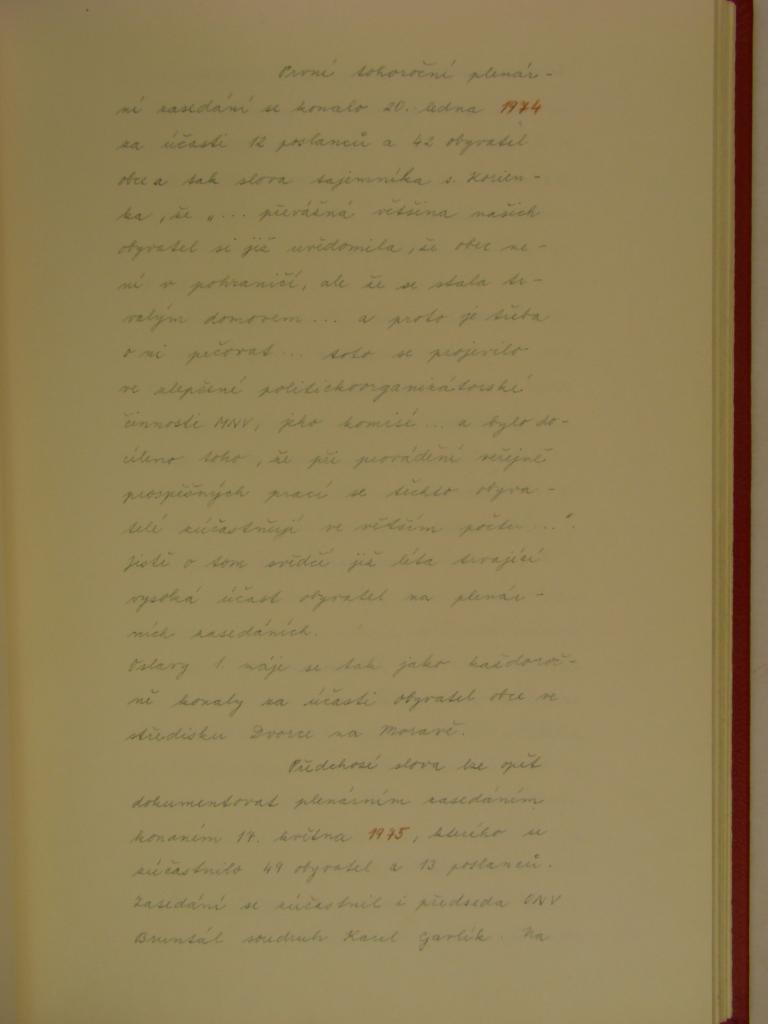 První tohoroční plenár-
ní zasedání se konalo 20. ledna 1974
za účasti 12 poslanců a 42 obyvatel
obce a tak slova tajemníka s. Korien-
ka, že „... převážná většina našich
obyvatel si již uvědomila, že obec ne-
ní v pohraničí, ale že se stala tr-
valým domovem... a proto je třeba
o ni pečovat... toto se projevilo
ve zlepšené politickoorganizátorské
činnosti MNV, jeho komisí... a bylo do-
cíleno toho, že při provádění veřejně
prospěšných prací se těchto obyva-
telé zúčastňují ve větším počtu...“.
Jistě o tom svědčí již léta trvající
vysoká účast obyvatel na plenár-
ních zasedáních.
Oslavy 1. máje se tak jako každoroč-
ně konaly za účasti obyvatel obce ve
středisku Dvorce na Moravě.
Předchosí slova lze opět
dokumentovat plenárním zasedáním
konaném 14. května 1975, kterého se
zúčastnilo 49 obyvatel a 13 poslanců.
Zasedání se zúčastnil i předseda ONV
Bruntál soudruh Karel Gavlík. Na